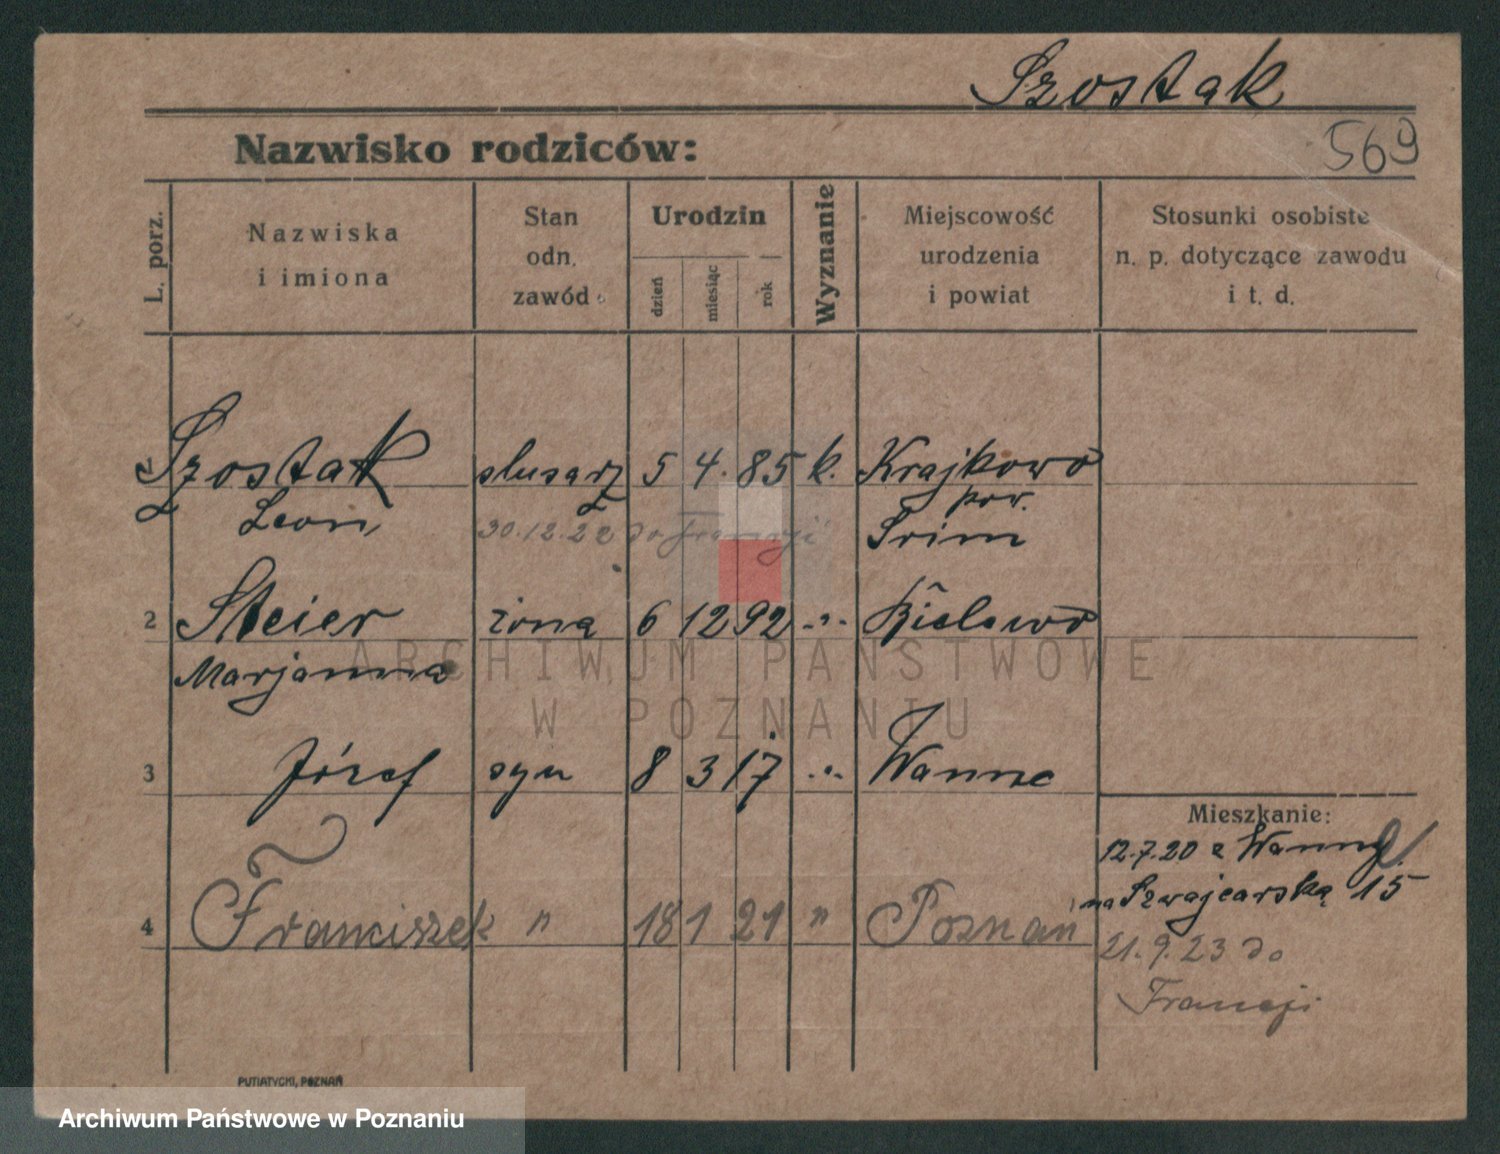 Szostak
569
Nazwisko rodziców:
L. porz.
Nazwiska
i imiona
Stan
odn.
zawód
Urodzin
dzień
miesiąc
rok
Wyznanie
Miejscowość
urodzenia
i powiat
Stosunki osobiste
n. p. dotyczące zawodu
i t. d.
1 Szostak slusarz 5 4. 85 k. Krajkowo
Leon pow.
30.12.22 do Francji Śrim
2 Steier żona 6 12 92 -"- Bielewo
Marjanna
3 Józef syn 8 3 17 -"- Wanne
Mieszkanie:
12.7.20 z Wanne
na Szwajcarską 15
4 Franciszek " 18 1 21 " Poznań
21.9.23 do
Francji
PUTIATYCKI, POZNAŃ
ARCHIWUM PAŃSTWOWE
W POZNANIU
Archiwum Państwowe w Poznaniu